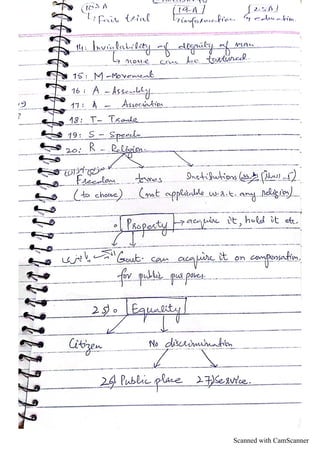 10-A
19-A 25A
Fair trial information education
14: Inviolability of dignity of man
↳ none can be tortured.
15: M - Movement
16: A - Assembly
17: A - Association
18: T - Trade
19: S - Speech
20: R - Religion
Freedom taxes Institutions
(to chose) (not applicable w.r.t. any religion)
Property → acquire it, hold it etc.
Govt. can acquire it on compensation
for public purposes
25) Equality
Citizen No discrimination
26) Public place 27) Service.
Scanned with CamScanner